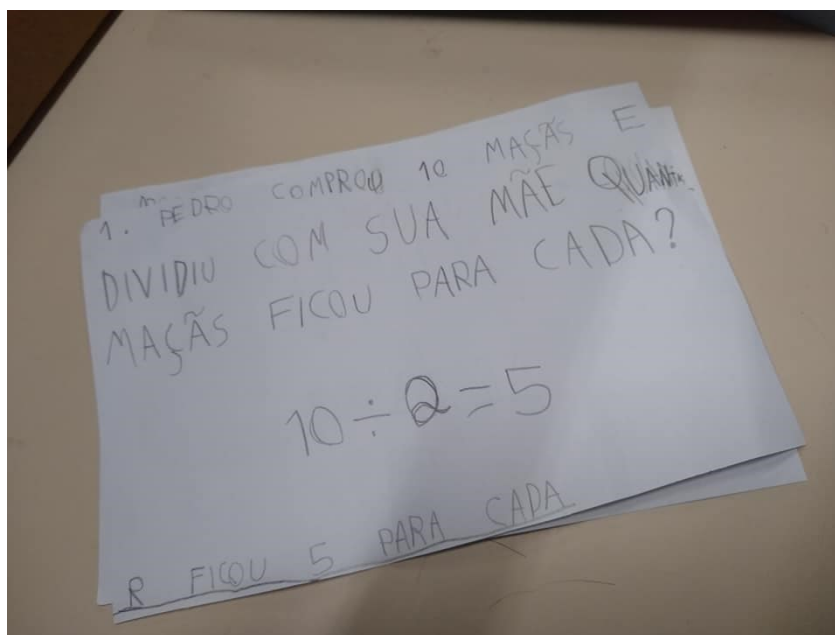 1. PEDRO COMPROU 10 MAÇÃS E
DIVIDIU COM SUA MÃE
MAÇÃS FICOU PARA CADA?
10 ÷ 2 = 5
R FICOU 5 PARA CADA